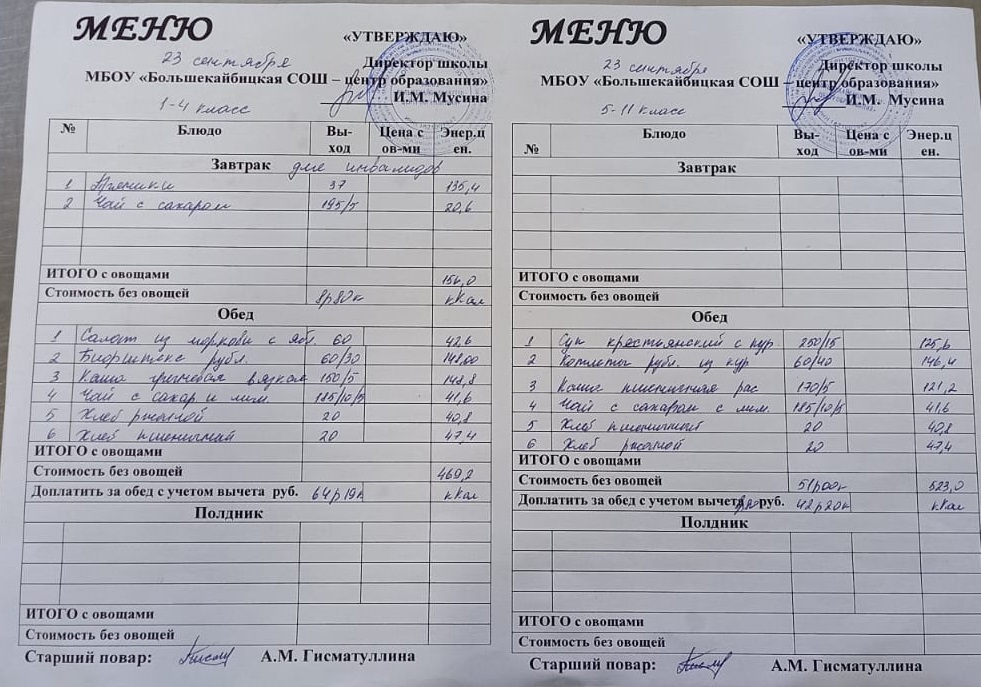 МЕНЮ
«УТВЕРЖДАЮ»
23 сентября
Директор школы
МБОУ «Большекайбицкая СОШ – центр образования»
И.М. Мусина
1-4 класс
№ Блюдо Вы-ход Цена с ов-ми Энер.ц ен.
Завтрак для инвалидов
1 Пряники 37 135,4
2 Чай с сахаром 195/5 20,6
ИТОГО с овощами 156,0
Стоимость без овощей 8р80к кКал
Обед
1 Салат из моркови с ябл. 60 42,6
2 Бифштекс рубл. 60/30 148,00
3 Каша гречневая вязкая 150/5 148,8
4 Чай с сахар и лим. 185/10/5 41,6
5 Хлеб ржаной 20 40,8
6 Хлеб пшеничный 20 47,4
ИТОГО с овощами
Стоимость без овощей 469,2
Доплатить за обед с учетом вычета руб. 64р19к кКал
Полдник
ИТОГО с овощами
Стоимость без овощей
Старший повар: А.М. Гисматуллина
МЕНЮ
«УТВЕРЖДАЮ»
23 сентября
Директор школы
МБОУ «Большекайбицкая СОШ – центр образования»
И.М. Мусина
5-11 класс
№ Блюдо Вы-ход Цена с ов-ми Энер.ц ен.
Завтрак
ИТОГО с овощами
Стоимость без овощей
Обед
1 Суп крестьянский с кур 250/15 125,6
2 Котлеты рубл. из кур 60/40 146,4
3 Каша пшеничная рас 170/5 121,2
4 Чай с сахаром с лим. 185/10/5 41,6
5 Хлеб пшеничный 20 40,8
6 Хлеб ржаной 20 47,4
ИТОГО с овощами
Стоимость без овощей 51р00к 523,0
Доплатить за обед с учетом вычета руб. 42р20к кКал
Полдник
ИТОГО с овощами
Стоимость без овощей
Старший повар: А.М. Гисматуллина